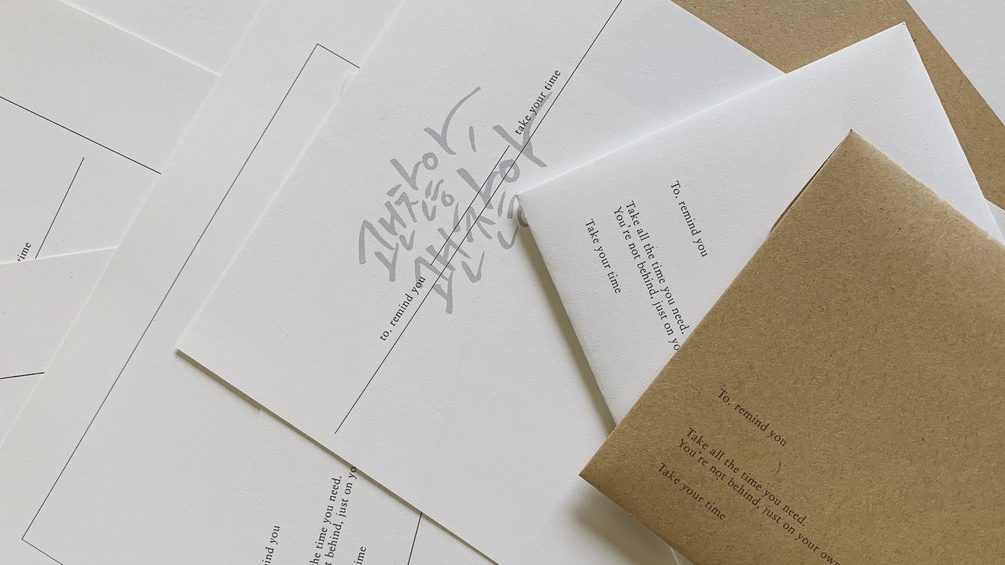 take your time
괜찮아,
괜찮아
to. remind you
To. remind you
Take all the time you need.
You're not behind, just on yo
Take your time
To. remind you
Take all the time you need.
You're not behind, just on your own
Take your time
ime
ind you
he time you need.
t behind, just on yo
ime